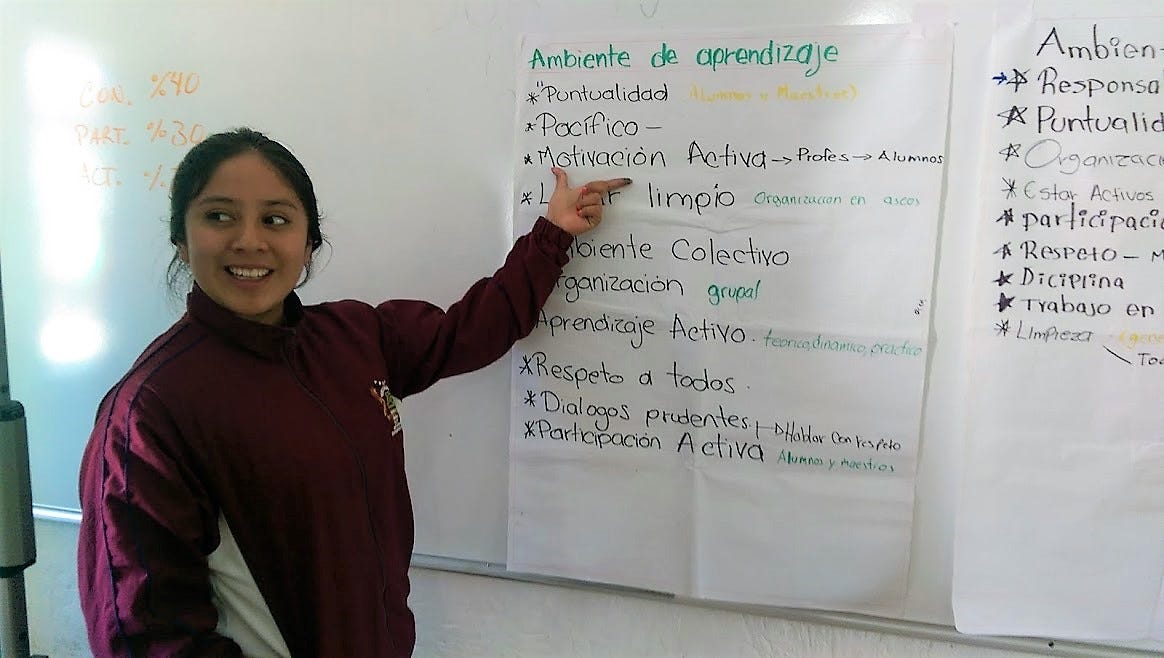 CON. %40
PART. %30
ACT. %
Ambiente de aprendizaje
*"Puntualidad Alumnos y Maestros)
*Pacífico -
*Motivación Activa → Profes → Alumnos
* limpio Organizacion en ascos
biente Colectivo
rganización grupal
Aprendizaje Activo. teorico, dinamico, practico
*Respeto a todos.
*Dialogos prudentes. → Hablar con respeto
*Participación Activa Alumnos y maestros
Ambien
→ * Responsa
* Puntualid
* Organizaci
* Estar Activos
* participació
* Respeto - M
* Diciplina
* Trabajo en
* Limpieza (gene
Toc